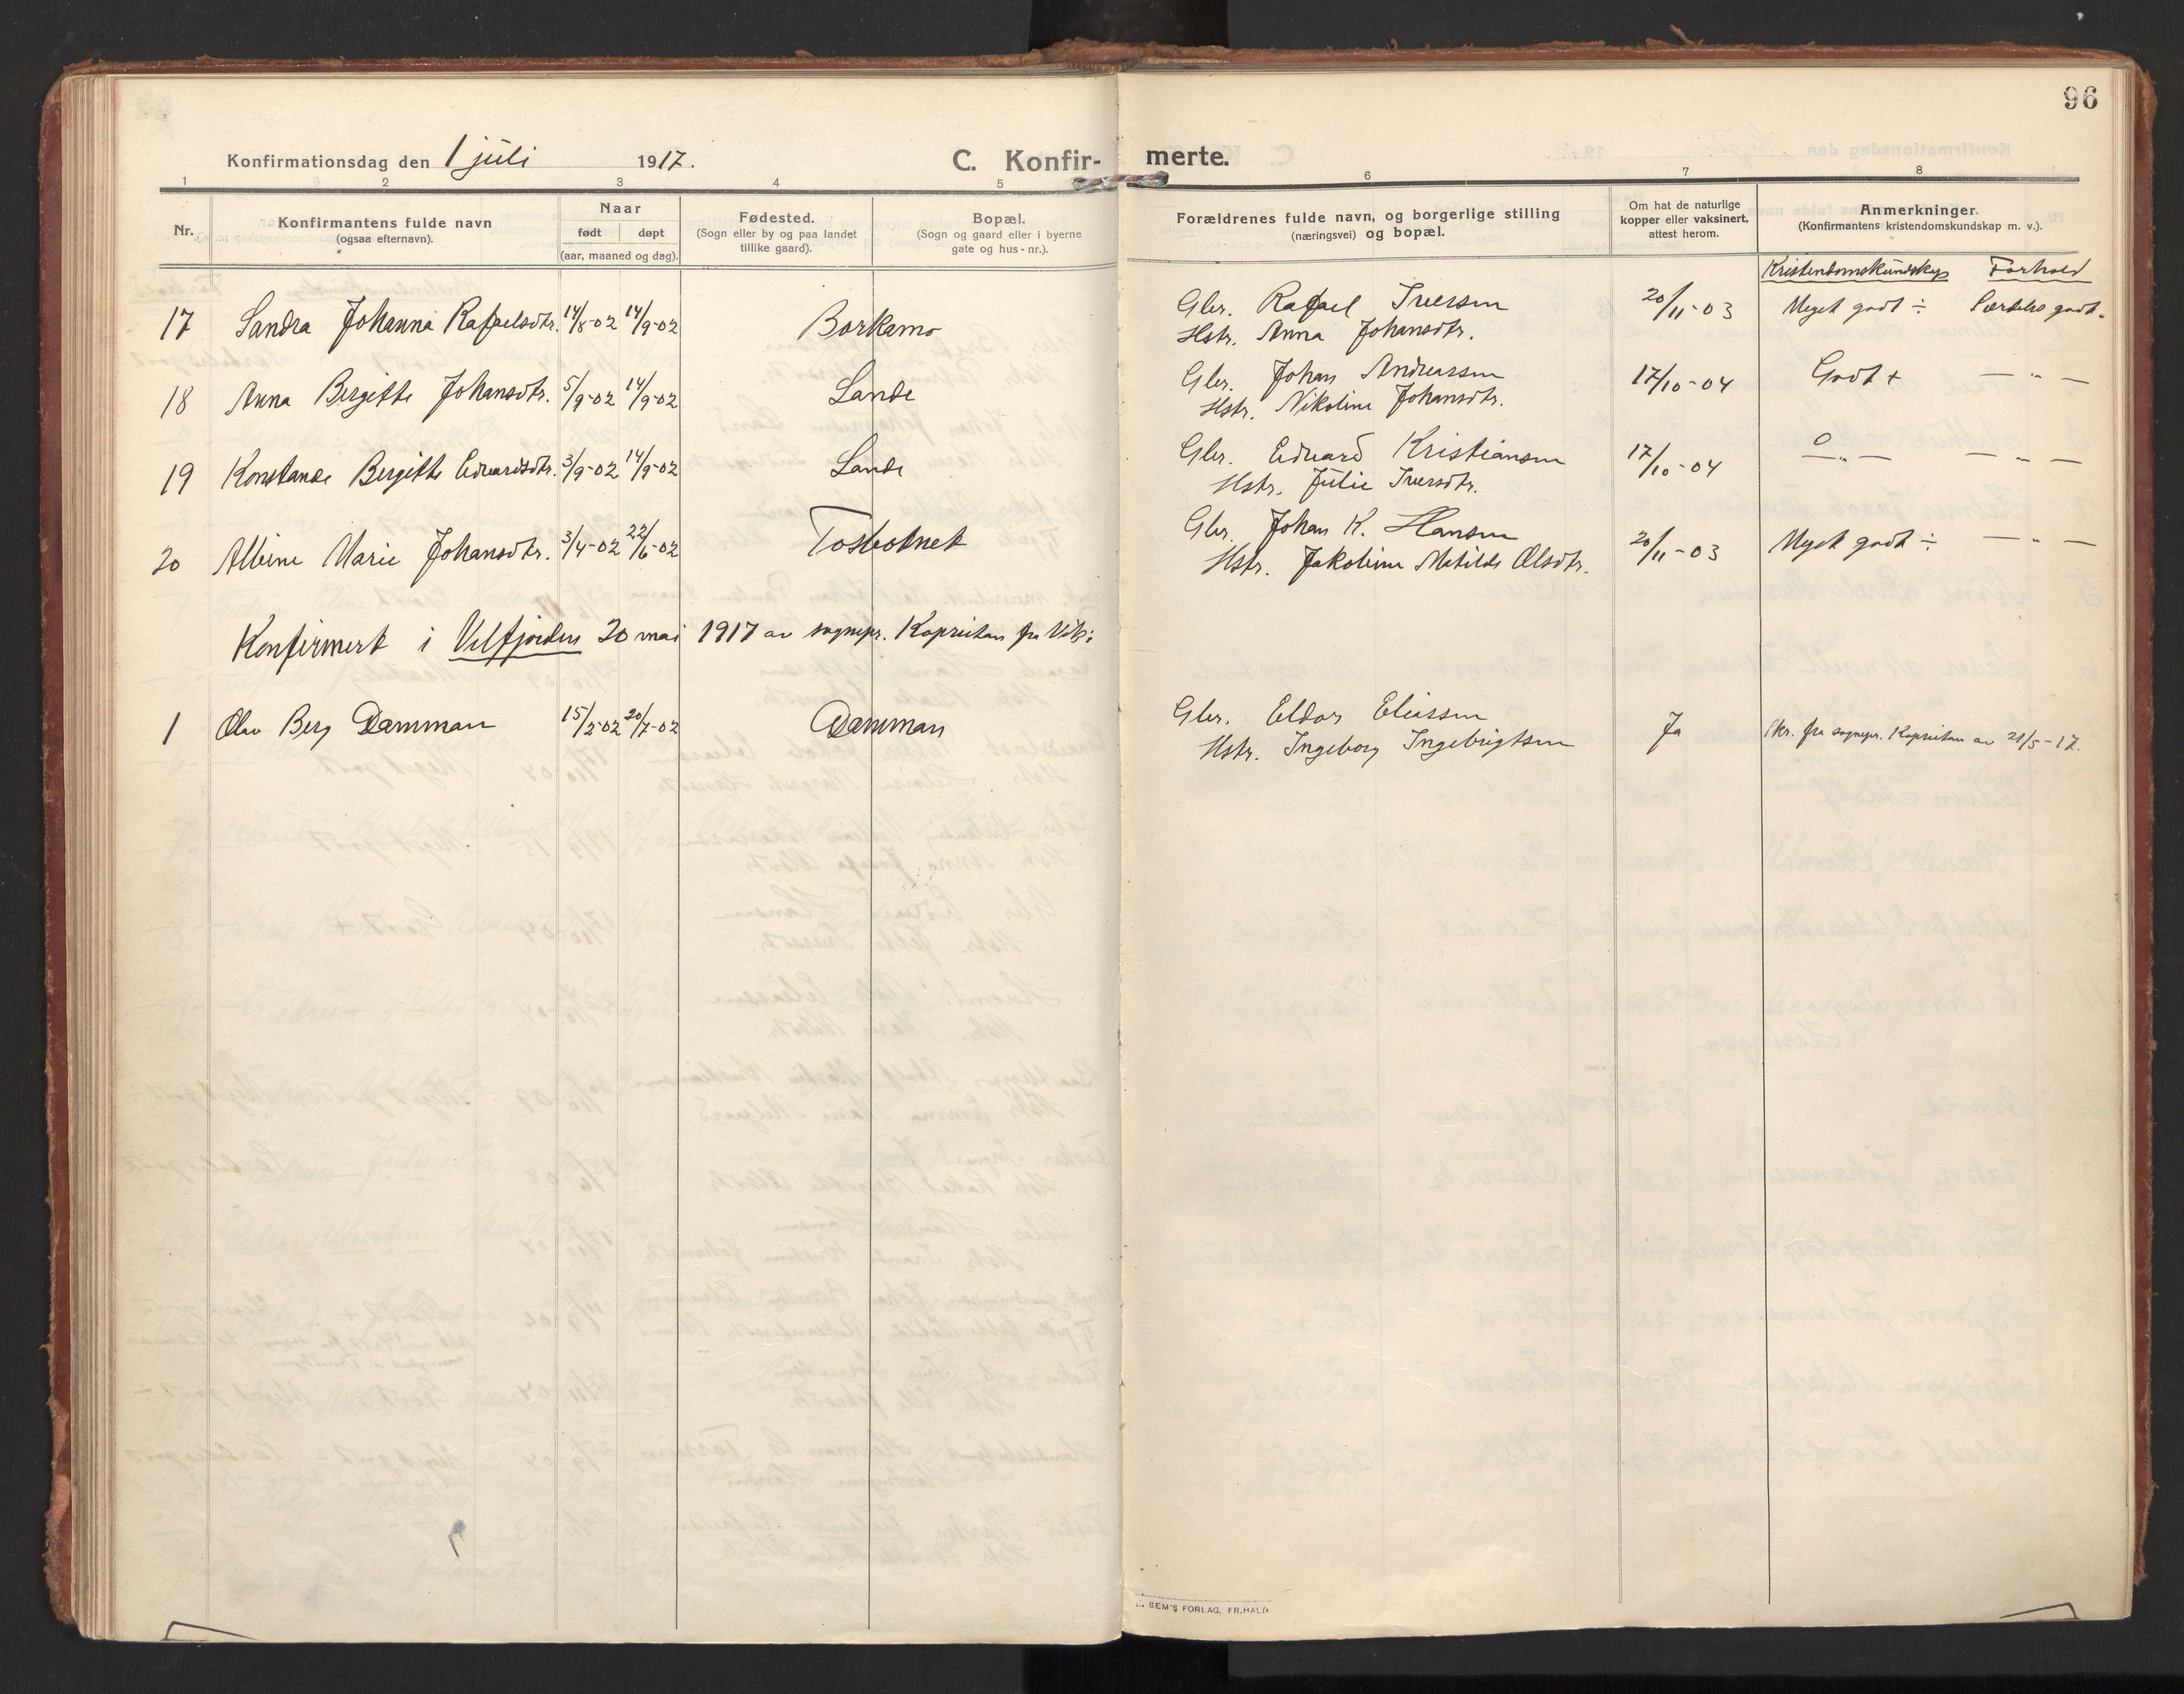 96
Konfirmationsdag den 1 juli 1917. C. Konfir- merte.
1 2 3 4 5 6 7 8
Nr. Konfirmantens fulde navn (ogsaa efternavn). Naar født døpt (aar, maaned og dag). Fødested. (Sogn eller by og paa landet tillike gaard). Bopæl. (Sogn og gaard eller i byerne gate og hus-nr.). Forældrenes fulde navn, og borgerlige stilling (næringsvei) og bopæl. Om hat de naturlige kopper eller vaksinert, attest herom. Anmerkninger. (Konfirmantens kristendomskundskap m. v.).
Kristendomskundskap Forhold
17 Sandra Johanna Rafaelsdtr. 14/8-02 14/9-02 Borkamo Gbr. Rafael Iversen 20/11-03 Meget godt ÷ Særdeles godt.
Hstr. Anna Johansdtr.
18 Anna Bergitte Johansdtr. 5/9-02 14/9-02 Lande Gbr. Johan Andreassen 17/10-04 Godt + — " —
Hstr. Nikoline Johansdtr.
19 Konstanse Bergitte Edvardsdtr. 3/9-02 14/9-02 Lande Gbr. Edvard Kristiansen 17/10-04 — " — — " —
Hstr. Julie Iversdtr.
20 Albine Marie Johansdtr. 3/4-02 22/6-02 Tosbotnet Gbr. Johan K. Hansen 20/11-03 Meget godt ÷ — " —
Hstr. Jakobine Matilde Olsdtr.
Konfirmert i Velfjorden 20 mai 1917 av sognepr. Kopreitan fra Vik:
1 Olav Berg Damman 15/2-02 20/7-02 Damman Gbr. Eldor Eliassen Ja Skr. fra sognepr. Kopreitan av 21/5-17.
Hstr. Ingeborg Ingebrigtsen
SEM'S FORLAG, FR.HALD